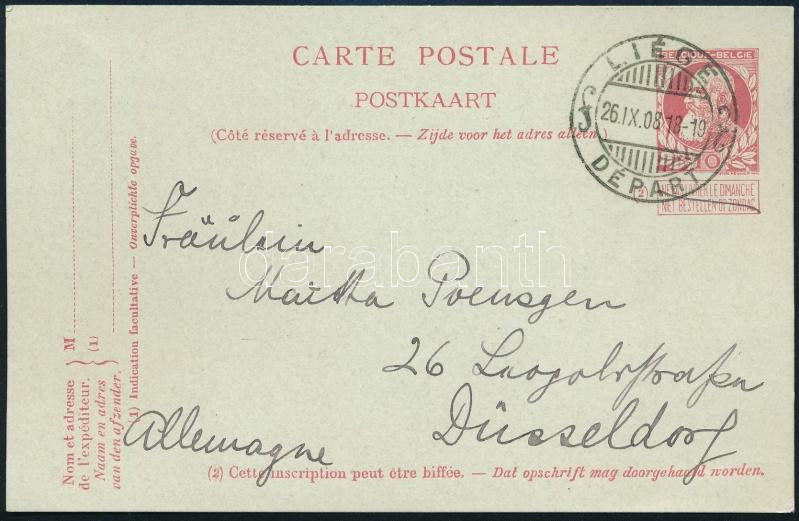 CARTE POSTALE
POSTKAART
(Côté réservé à l'adresse. — Zijde voor het adres alleen.)
BELGIQUE-BELGIË
10
LIÉGE
26.IX.08 18-19
DÉPART
(2) NE PAS LIVRER LE DIMANCHE
NIET BESTELLEN OP ZONDAG
Fräulein
Martha Poensgen
26 Leopoldstraße
Düsseldorf
Allemagne
darabanth
Nom et adresse
de l'expéditeur.
Naam en adres
van den afzender.
M
(1)
(1) Indication facultative — Onverplichte opgave.
(2) Cette inscription peut être biffée. — Dat opschrift mag doorgehaald worden.